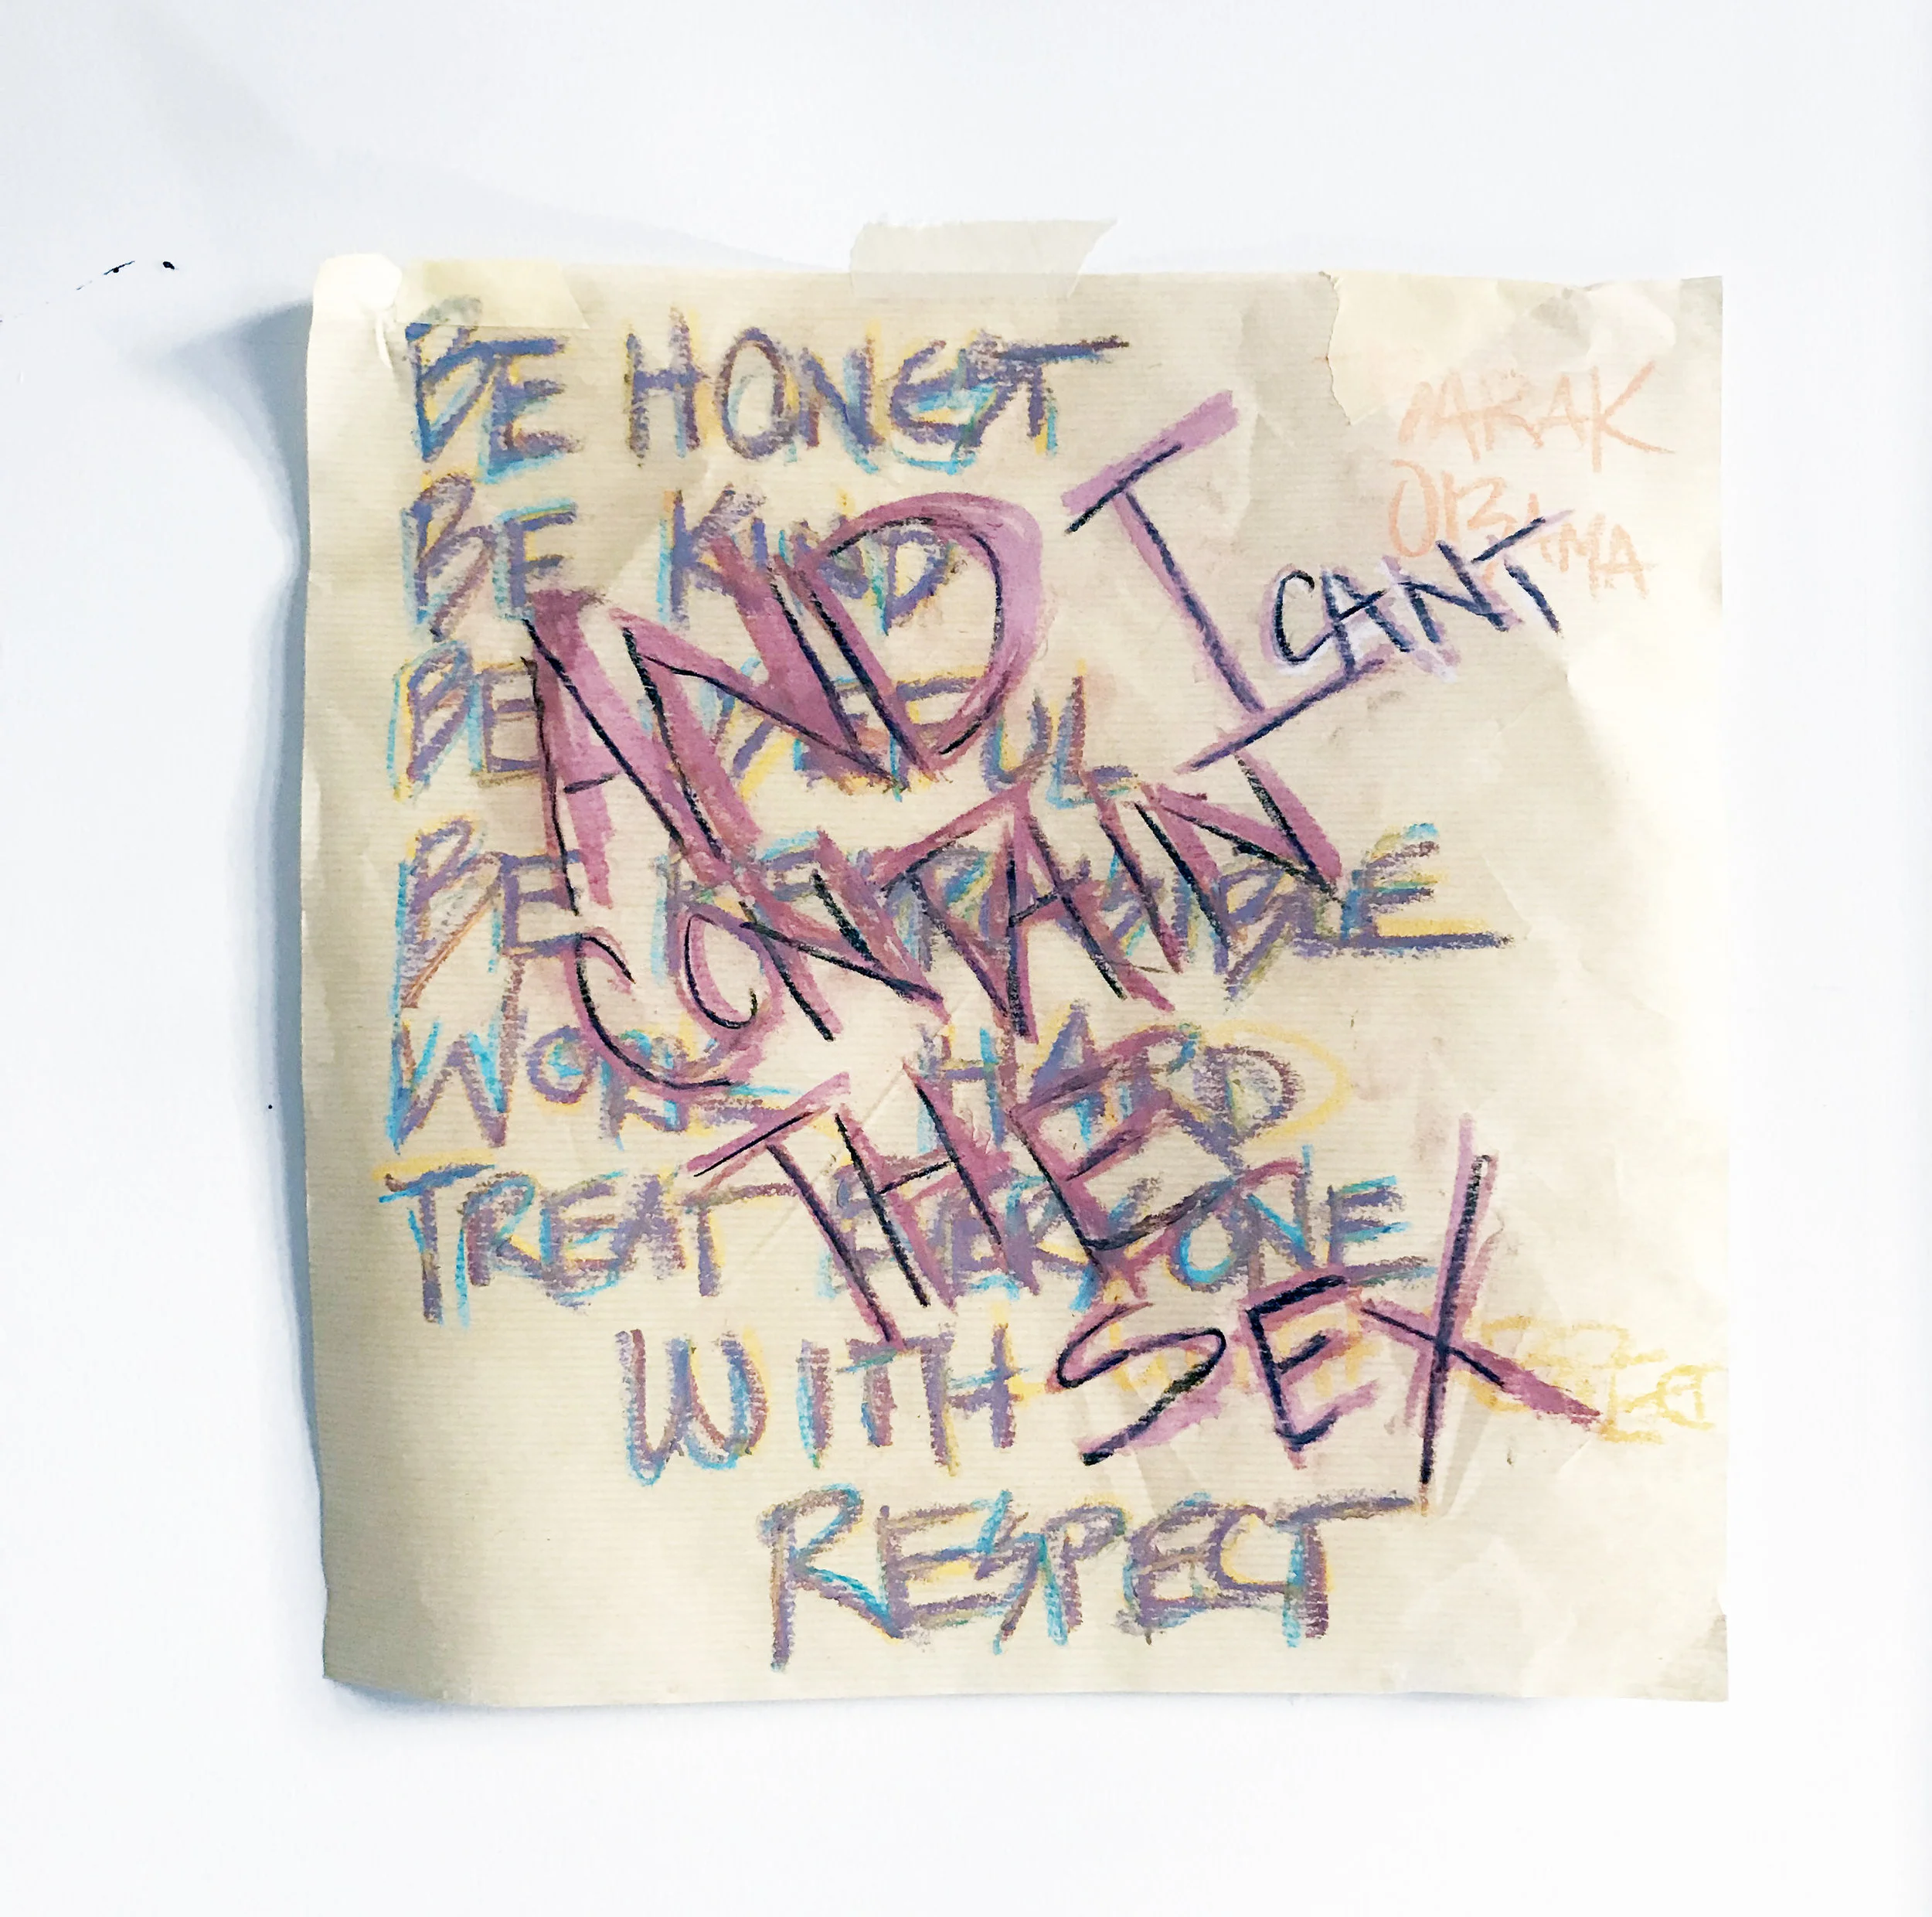 BE HONEST
BE KIND
BE USEFUL
BE
WORK HARD
TREAT EVERYONE
WITH
RESPECT
BARAK
OBAMA
AND I CANT
CONTAIN
THE
SEX